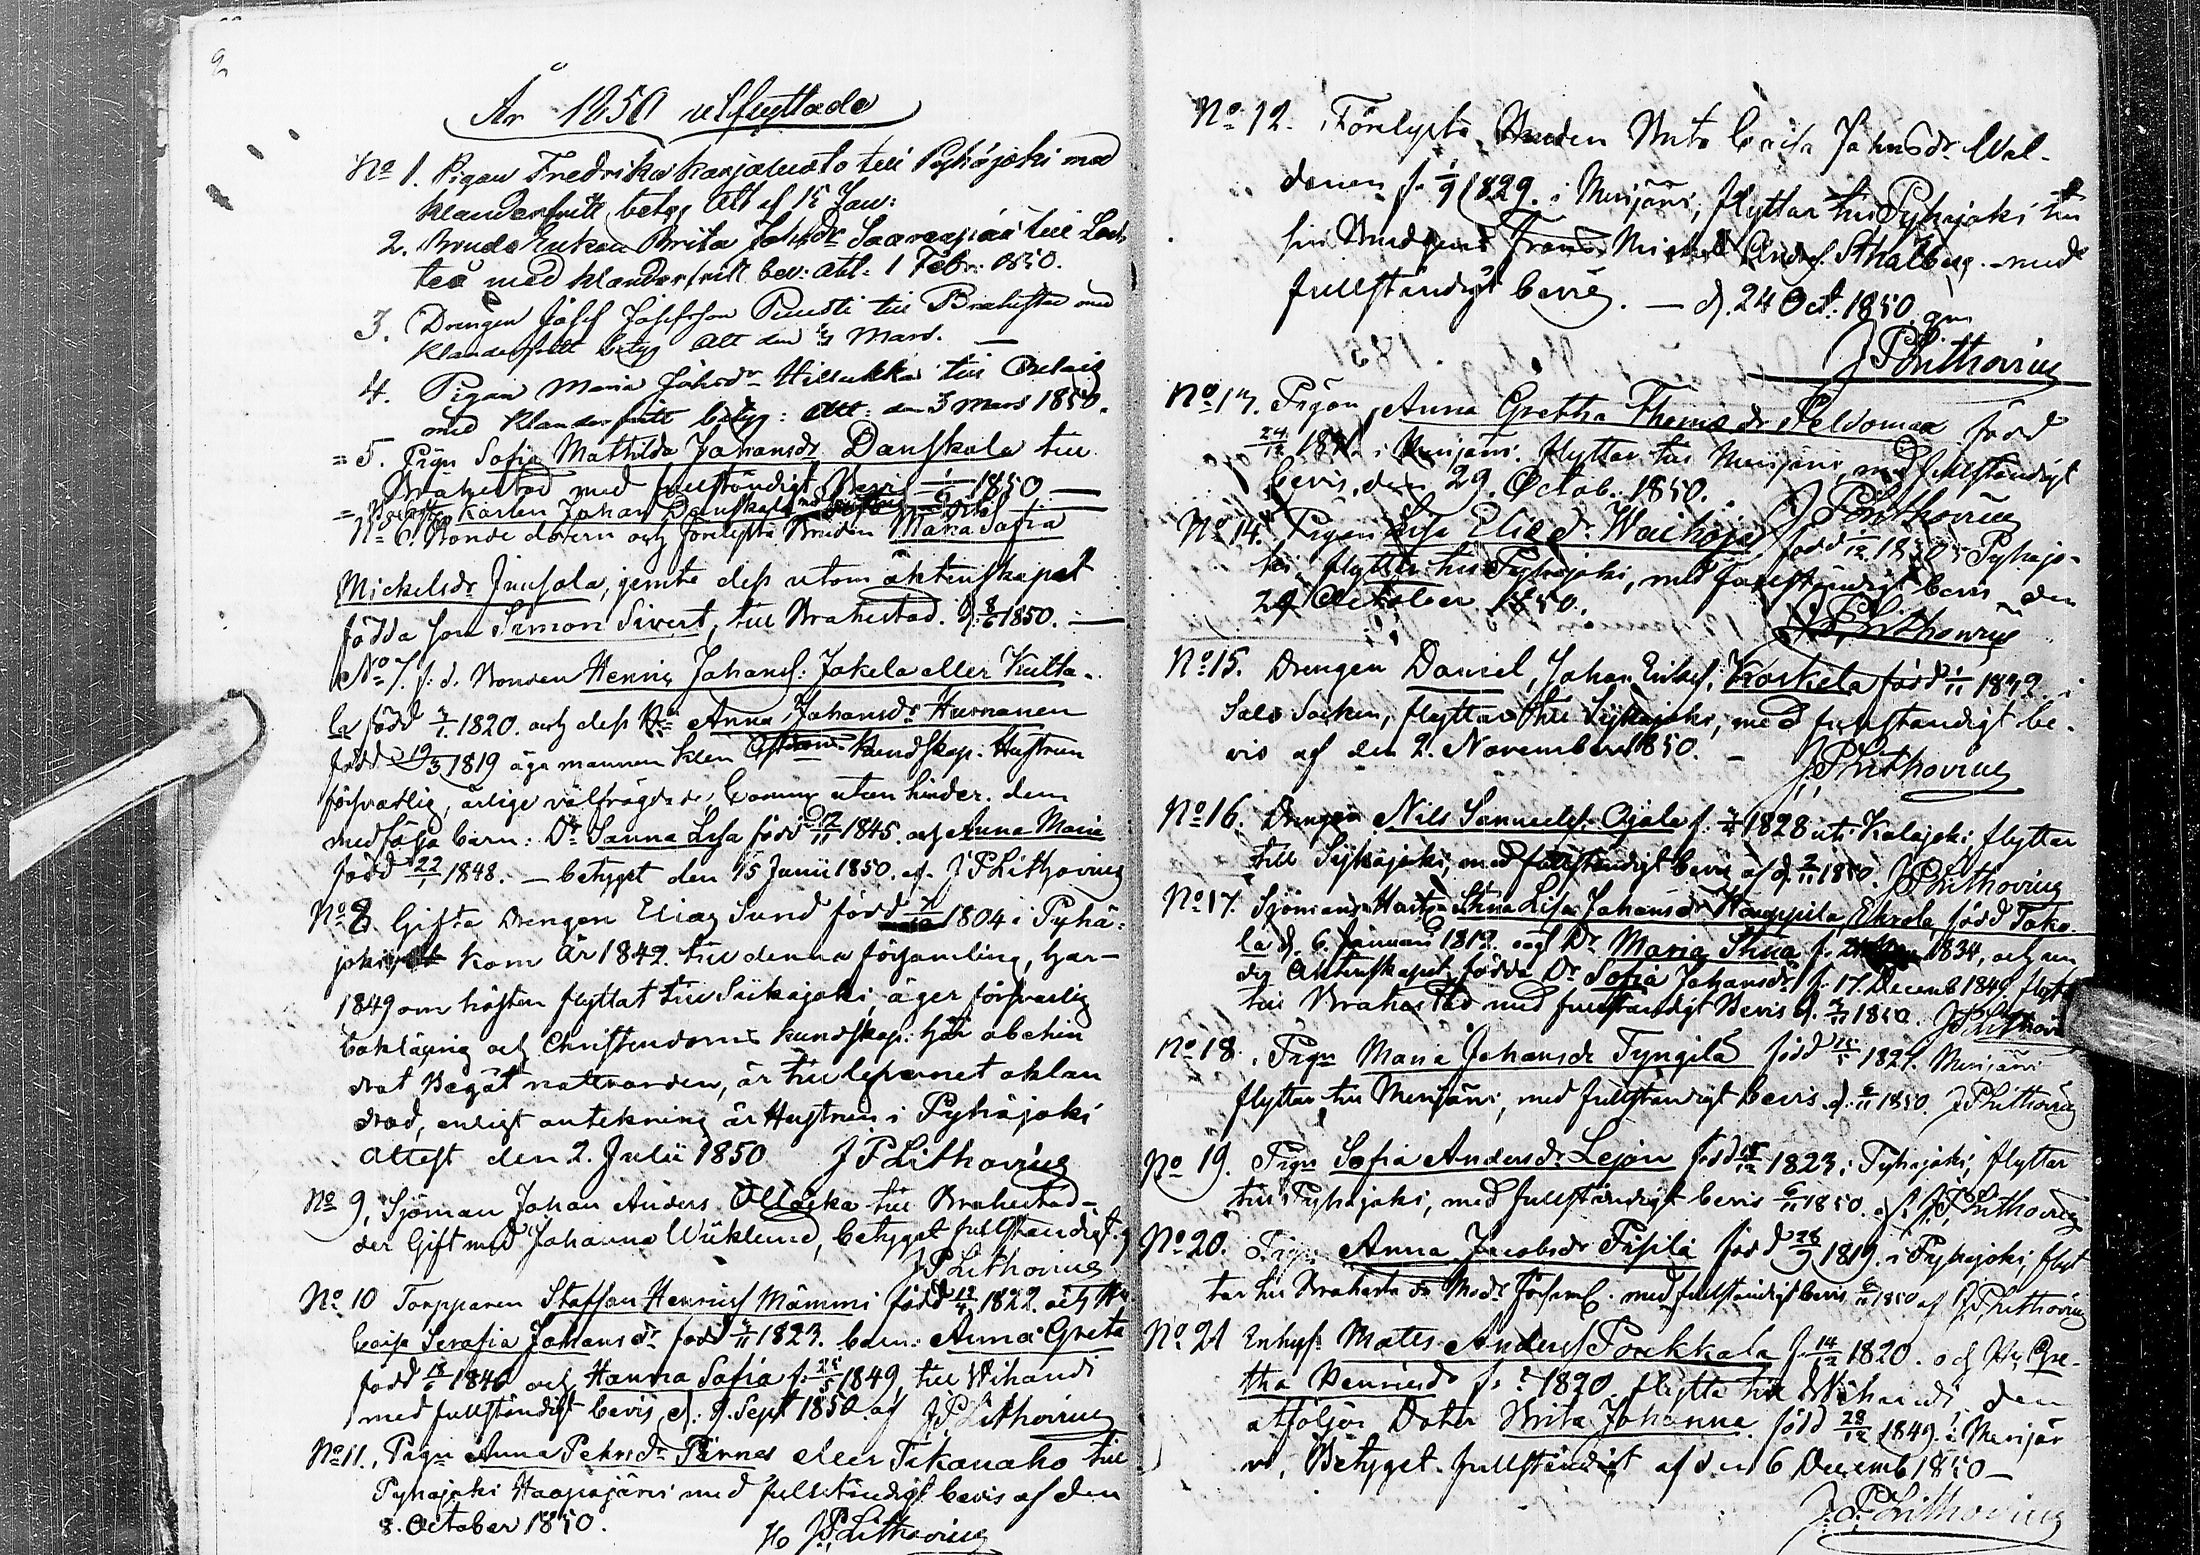 År 1850 utflyttade
No 1. Pigan Fredrika Karjaluoto till Pyhäjoki med
klanderfritt betyg Att af 15 Jan:
2. Bonde Enkan Brita Johsdr Saarenpää till Loch
teå med klanderfritt bev: att: 1 Febr: 1850.
3. Drengen Josef Josefsson till Brahestad med
klanderfritt betyg Att den Mars.
4. Pigan Maria Johsdr till
med klanderfritt betyg: Att: den 3 Mars 1850.
= 5. Pign Sofia Mathilda Johansdr Danskala till
Brahestad med fullständigt Bevis 1850
= Karlen Johan Danskala
No 6. Bonde dotern och förelysta Bruden Maria Sofia
Mickelsdr Juusola, jemte dess utom äktenskapet
födda son Simon Sivert, till Brahestad. d. 8/6 1850.
No 7. f. d. Bonden Henric Johanss: Jakela eller Kulta-
la född 1820. och dess Hu Anna Johansdr Hurnanen
född 19/3 1819 äga mannen klen Christendoms kundskap. Hustrun
försvarlig, ärlige välfrägdade, Comm: utan hinder. dem
medfölja barn: Dr Sanna Lisa född 17/11 1845. och Anna Maria
född 22/1 1848. — betyget den 15 Junii 1850. af. J P Lithovius
No 8 Gifte Drengen Elias Sund född 1804 i Pyhä-
joki, kom År 1842. till denna församling, har
1849 om hösten flyttat till Siikajoki, äger försvarlig
bokläsning och Christendoms kundskap: här obehin
drat Begåt nattvarden, är till lefvernet oklan
drad, enligt antekning är Hustrun i Pyhäjoki
Attest den 2. Julii 1850 J P Lithovius
No 9, Sjöman Johan Anders till Brahestad
der Gift med Johanna Wiklund, betyget fullständigt. g
J P Lithovius
No 10 Torpparen Staffan Henricss Mämmi född 12/4 1822 och Hu
Caisa Serafia Johansdr född 1823. barn: Anna Greta
född 18/6 1846 och Hanna Sofia f. 25/5 1849, till Wihandi
med fullständigt bevis, d. 9. Sept 1850. af J P Lithovius
No 11., Pign Anna Pehrsdr Pernes eller Tikanaho till
Pyhäjoki Haapajärvi med fullständigt bevis af den
8. October 1850. J P Lithovius
No 12. Förelysta Bruden Brita Caisa Johansdr Wal-
denen f. 1/9 1829. i Merijärvi, flyttar till Pyhäjoki till
sin Brudgum Frans Mickel Andss. Sthålberg. med
fullständigt bevis. — d. 24 Oct: 1850. gm
J P Lithovius
No 13. Pigan Anna Gretha Thomædr Peldomaa född
24/12 i Merijärvi. flyttar till Merijärvi, med fullständigt
bevis, den 29. Octob: 1850. J P Lithovius
No 14. Pigan Lisa Eliædr född 1830 i Pyhäjo-
ki, flyttar till Pyhäjoki, med fullständigt bevis den
29 October 1850. J P Lithovius
No 15. Drengen Daniel, Johan Erikss. Koskela född 1832. i
Salo Socken, flyttar till Siikajoki, med fullständigt be-
vis af den 2. November 1850. — J P Lithovius
No 16. Drengen Nils Samuelss. Ojala f. 1828 uti Kalajoki, flyttar
till Siikajoki, med fullständigt bevis af d. 2/11 1850. J P Lithovius
No 17. Sjömans Hustru Stina Lisa Johansdr Haappila, Ekrola, född Toko-
la d. 6. Januari 1812. och Dr Maria Stina f. 1834, och un
der Äktenskapet födda Dr Sofia Johansdr f. 17. Decemb 1849, flytt
till Brahestad med fullständigt Bevis d. 1850. J P Lithovius
No 18. Pign Maria Johansdr Tyngilä född 1827. Merijärvi
flyttar till Merijärvi, med fullständigt bevis d. 6/11 1850. J P Lithovius
No 19. Pign Sofia Andersdr Lejon född 1823. i Pyhäjoki, flyttar
till Pyhäjoki, med fullständigt bevis 6/11 1850. af. J P Lithovius
No 20. Pign Anna Jacobsdr född 28/9 1819. i Pyhäjoki, flyt
tar till Brahestads Mod. Förs. med fullständigt bevis 1850 af J P Lithovius
No 21 Enhyss: Matts Anderss Porkkala f. 14/12 1820. och Hu Gre-
tha Henricsdr f. 1820. flytta till Wihandi, den
åtföljer Dotter Brita Johanna född 28/12 1849. i Merijär
vi. Betyget fullständigt af den 6 Decemb 1850 —
J. P. Lithovius